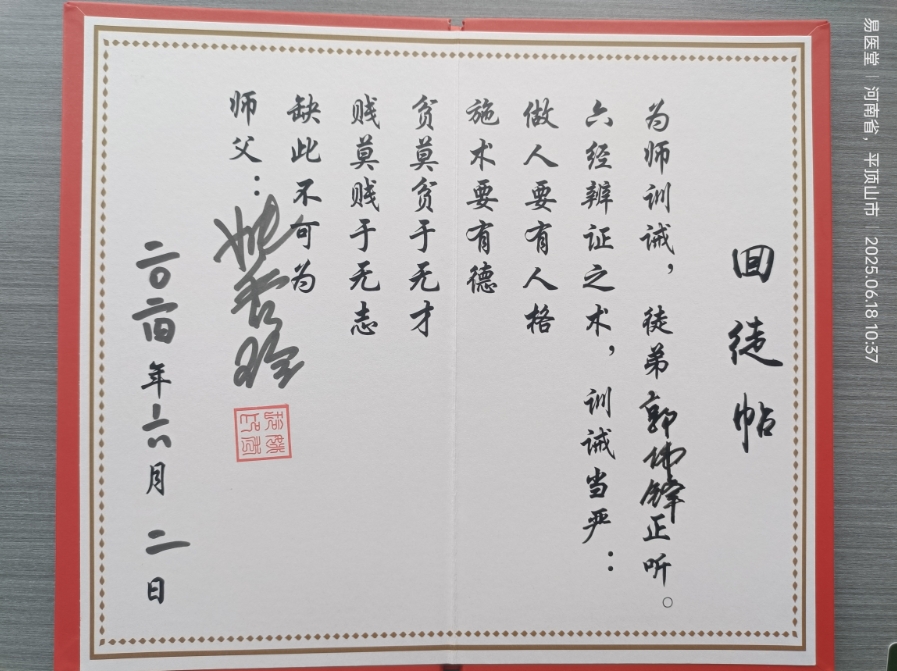 回徒帖
为师训诫，徒弟郭伟锋正听。
六经辨证之术，训诫当严：
做人要有人格
施术要有德
贫莫贫于无才
贱莫贱于无志
缺此不可为
师父：
二〇二四年六月二日
易医堂 | 河南省，平顶山市 | 2025.06.18 10:37